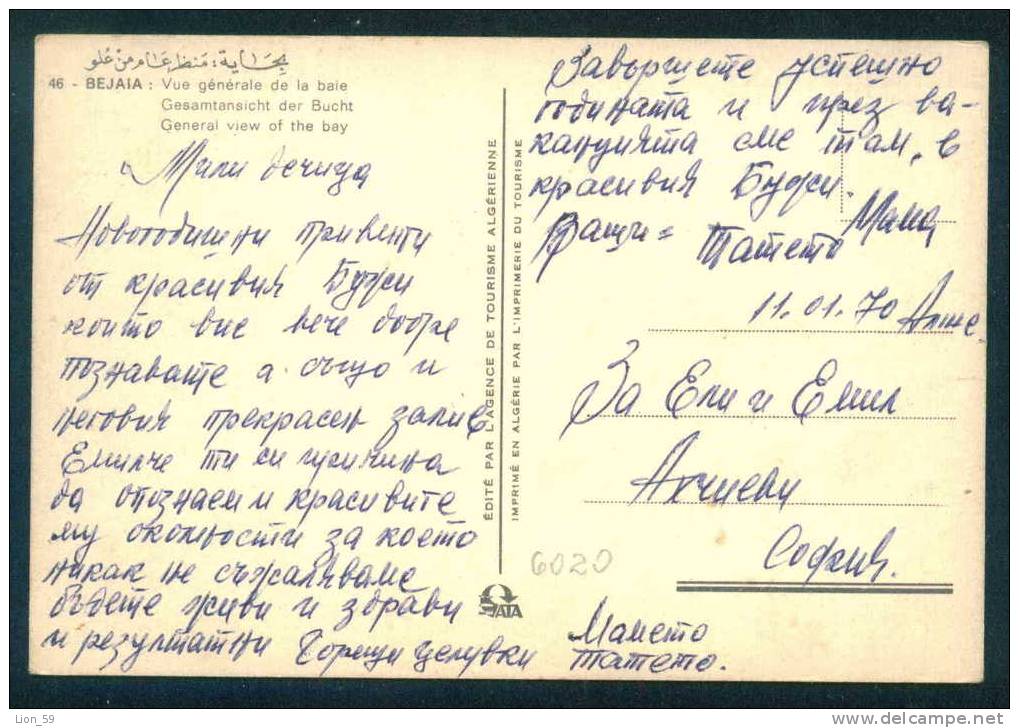 بجاية: منظر عام من علو
46 - BEJAIA : Vue générale de la baie
Gesamtansicht der Bucht
General view of the bay
Мили дечица
Новогодишни привети
от красивия Бужи
който вие вече добре
познавате а също и
неговия прекрасен залив
Емилче ти си причина
да опознаем и красивите
му околности за което
никак не съжаляваме
бъдете живи и здрави
и резултатни Горещи целувки
Мамето
татето.
Завършете успешно
годината и през ва-
канцията сме там, в
красивия Бужи.
Ваши = Татето Мама
11.01.70 Алже
За Ели и Емил
Ахчиеви
София.
6020
ÉDITÉ PAR L'AGENCE DE TOURISME ALGÉRIENNE
IMPRIMÉ EN ALGÉRIE PAR L'IMPRIMERIE DU TOURISME
ATA
Lion_59
www.delcampe.net